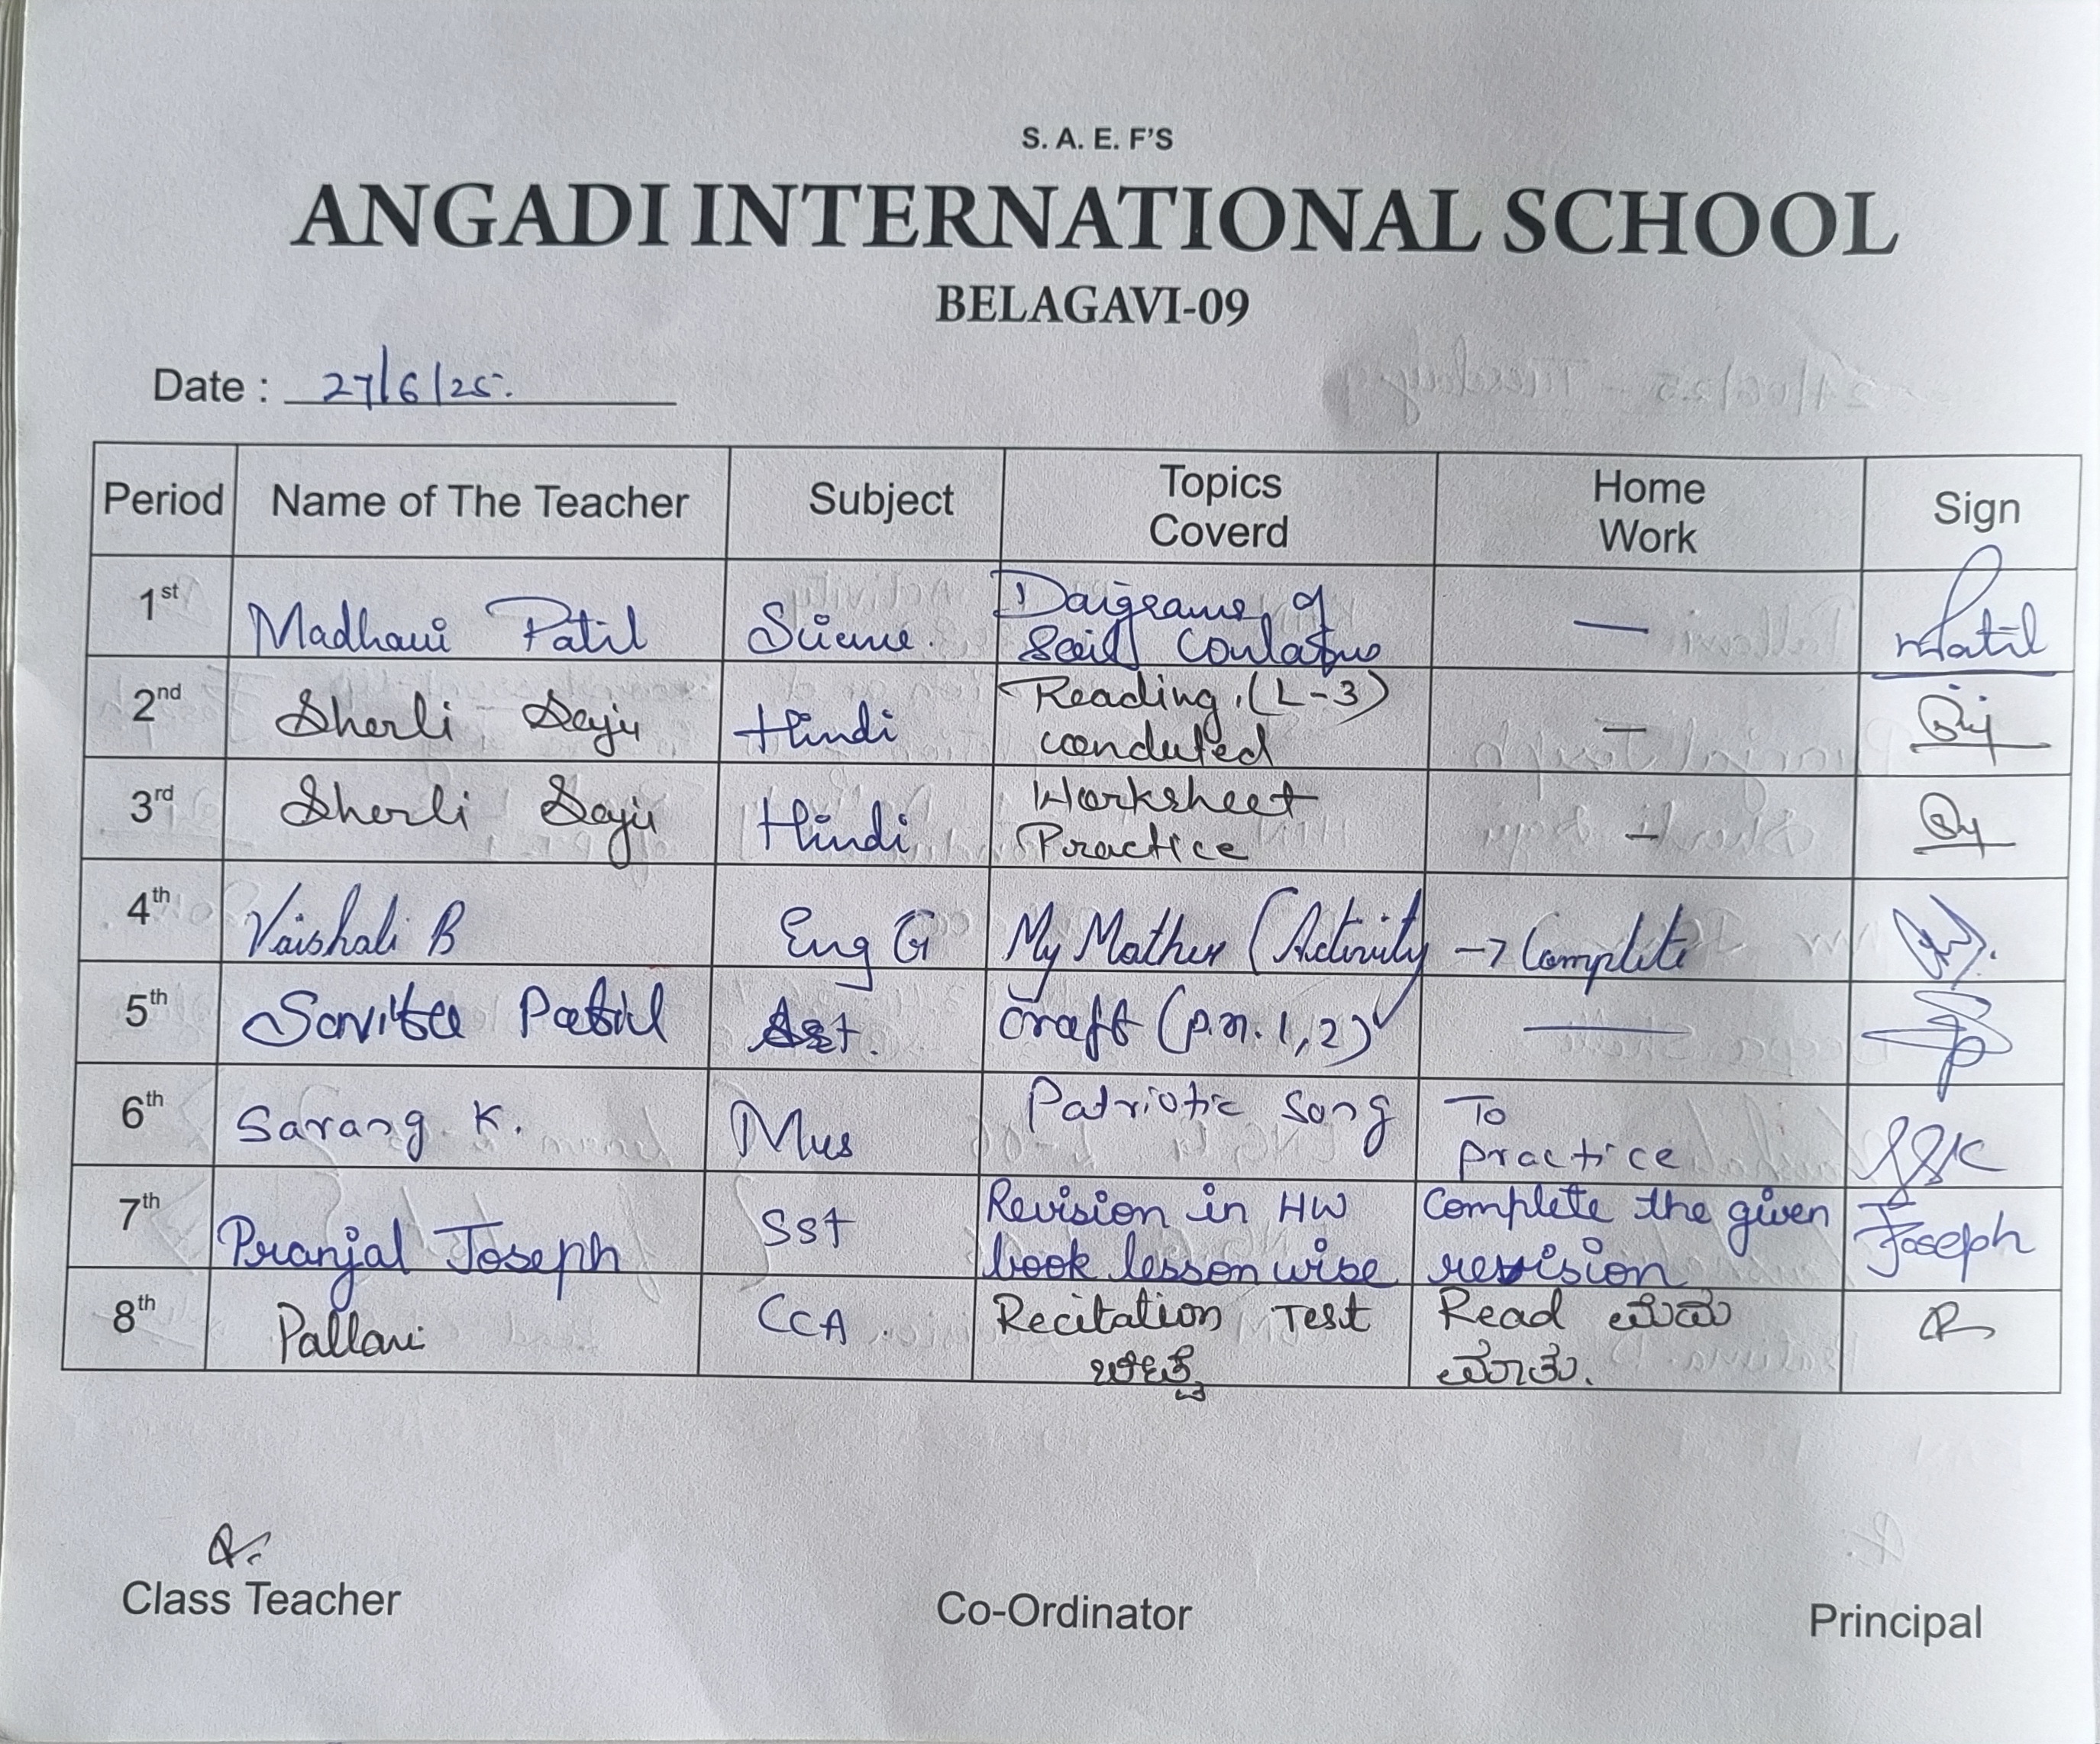 S. A. E. F'S
ANGADI INTERNATIONAL SCHOOL
BELAGAVI-09
Date : 27/6/25.
Period Name of The Teacher Subject Topics Coverd Home Work Sign
1st Madhavi Patil Science. Daigrams of — Patil
Soil
2nd Sherli Saju Hindi Reading (L-3) —
conduted
3rd Sherli Saju Hindi Worksheet –
Practice
4th Vaishali B Eng G My Mother (Activity → Complete
5th Savita Patil Art. Craft (p.n. 1,2) —
6th Sarang K. Mus Patriotic Song To
practice SSK
7th Pranjal Joseph SSt Revision in HW Complete the given Joseph
book lesson wise revision
8th Pallavi CCA. Recitation Test Read
ಮಾತು.
Class Teacher Co-Ordinator Principal